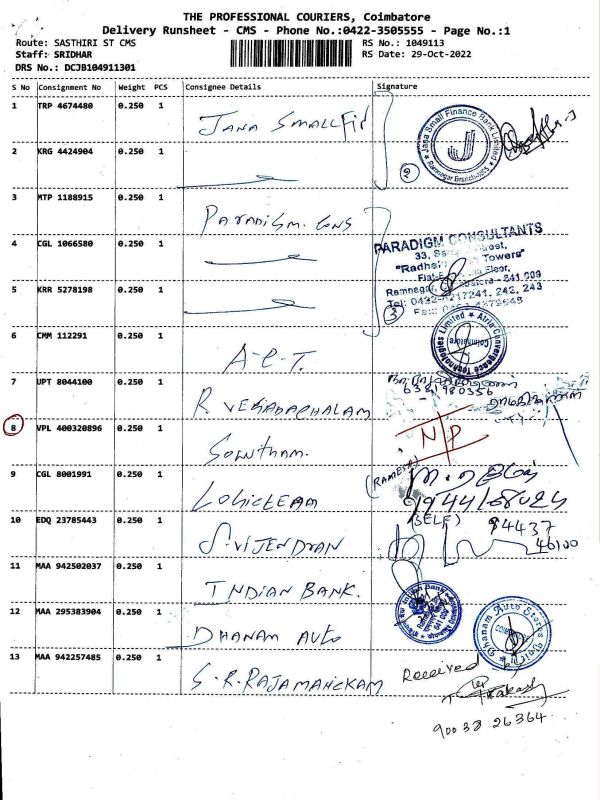 THE PROFESSIONAL COURIERS, Coimbatore
Delivery Runsheet - CMS - Phone No.:0422-3505555 - Page No.:1
Route: SASTHIRI ST CMS
RS No.: 1049113
Staff: SRIDHAR
RS Date: 29-Oct-2022
DRS No.: DCJB104911301
S No Consignment No Weight PCS Consignee Details Signature
1 TRP 4674480 0.250 1 JANA SMALL Fin
Jana Small Finance Bank Limited
Ramnagar Branch
2 KRG 4424904 0.250 1
3 MTP 1188915 0.250 1 PARADIGM. CONS
PARADIGM CONSULTANTS
4 CGL 1066580 0.250 1
Towers"
5 KRR 5278198 0.250 1
3
6 CMM 112291 0.250 1 A.C.T.
Atria Convergence Technologies Limited
Coimbatore
7 UPT 8044100 0.250 1 R VENKADACHALAM
6381980356
8 VPL 400320896 0.250 1
N/P
(RAMESH)
9 CGL 8001991 0.250 1 LOGICTEAM
(SELF)
94437
46100
10 EDQ 23785443 0.250 1 S.VIJENDRAN
11 MAA 942502037 0.250 1 INDIAN BANK.
12 MAA 295383904 0.250 1 DHANAM AUTO
Dhanam Auto Stores
13 MAA 942257485 0.250 1 S.R.RAJAMANICKAM
Received by
Prakash
90038 26364